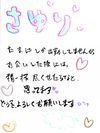 さゆり
たまにしか出勤しませんが
お会いした際には、
精一杯尽くせたらなと、
思ってます♡
どうぞよろしくお願いします